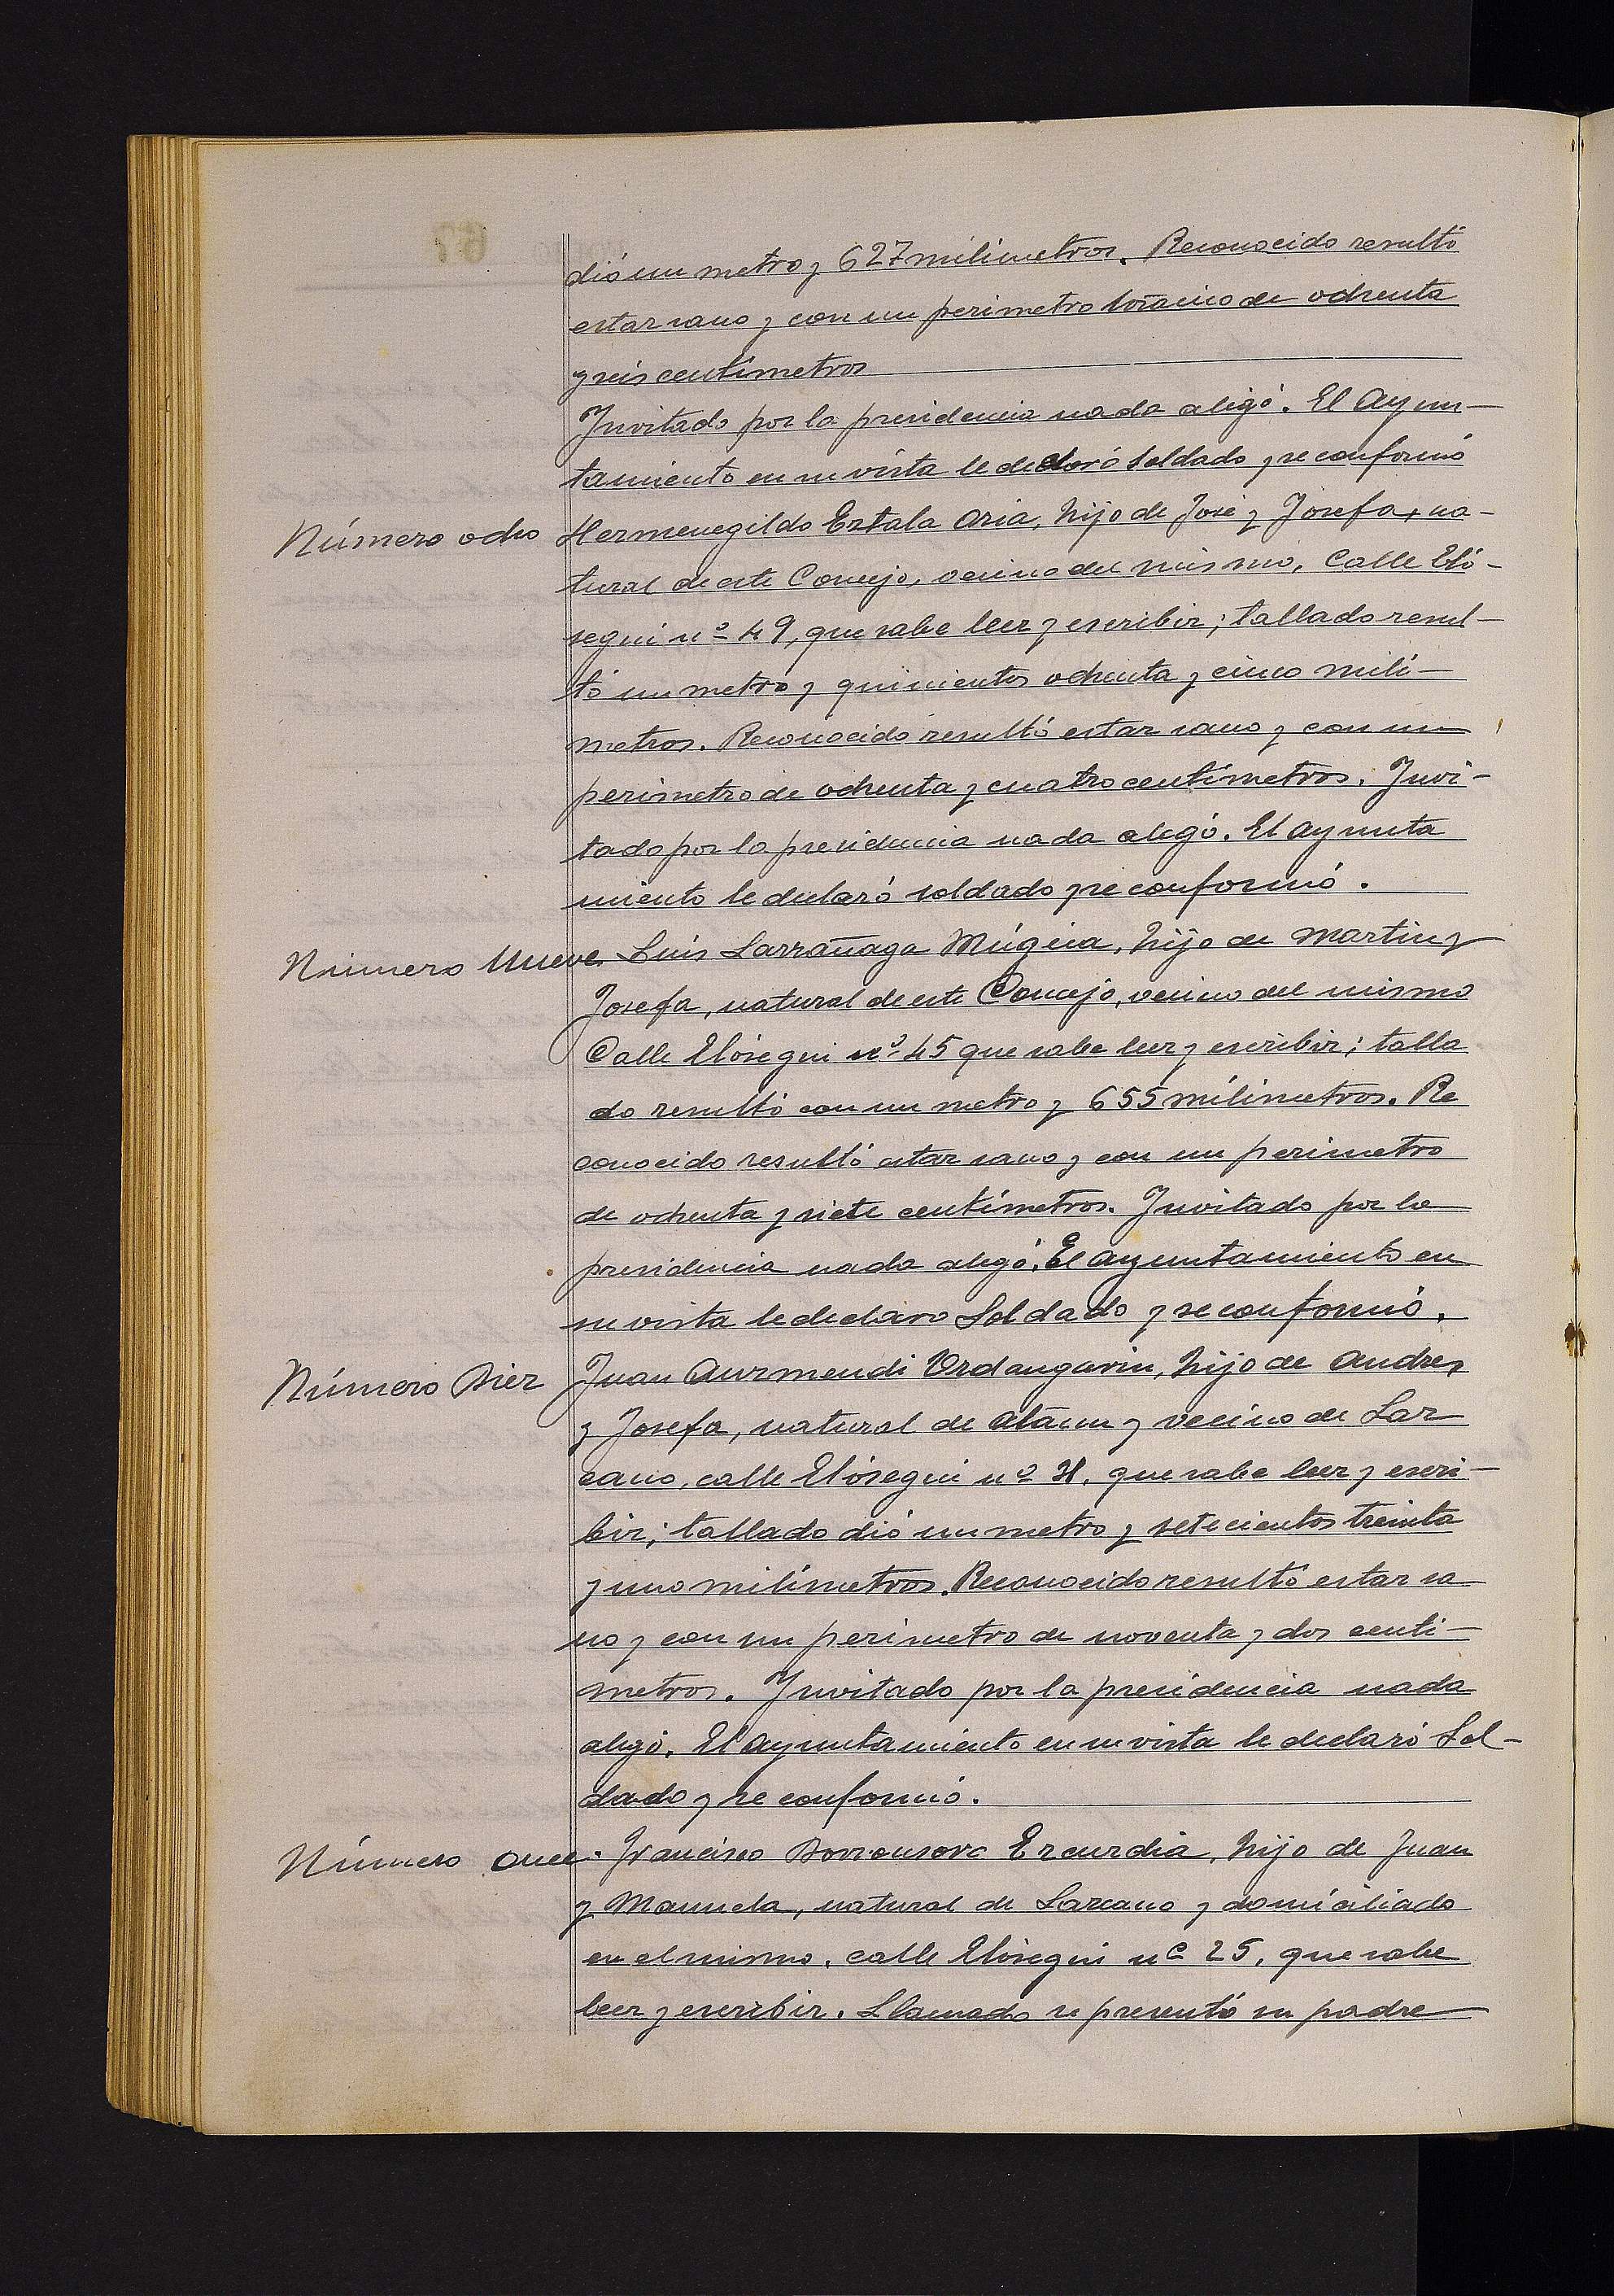 dió un metro y 627 milimetros. Reconocido resultó
estar sano y con un perimetro torácico de ochenta
y seis centímetros
Invitado por la presidencia nada alegó. El Ayun-
tamiento en su vista le declaró soldado y se conformó
Número ocho
Hermenegildo Eztala Aria, hijo de José y Josefa, na-
tural de este Concejo, vecino del mismo, Calle Eló-
segui nº 49, que sabe leer y escribir; tallado resul-
tó un metro y quinientos ochenta y cinco milí-
metros. Reconocido resultó estar sano y con un
perimetro de ochenta y cuatro centímetros. Invi-
tado por la presidencia nada alegó. El ayunta
miento le declaró soldado y se conformó.
Número Nueve
Luis Larrañaga Múgica, hijo de Martin y
Josefa, natural de este Concejo, vecino del mismo
Calle Elósegui nº 45 que sabe leer y escribir; talla
do resultó con un metro y 655 milímetros. Re
conocido resultó estar sano y con un perimetro
de ochenta y siete centímetros. Invitado por la
presidencia nada alegó. El ayuntamiento en
su vista le declaro Soldado y se conformó.
Número Diez
Juan Aurmendi Urdangarin, hijo de Andres
y Josefa, natural de Atáun y vecino de Laz
cano, calle Elósegui nº que sabe leer y escri-
bir; tallado dió un metro y setecientos treinta
y uno milímetros. Reconocido resultó estar sa
no y con un perimetro de noventa y dos centi-
metros. Invitado por la presidencia nada
alegó. El ayuntamiento en su vista le declaró Sol-
dado y se conformó.
Número once.
Francisco Dorronsoro Ezcurdia, hijo de Juan
y Manuela, natural de Lazcano y domiciliado
en el mismo, calle Elósegui nº 25, que sabe
leer y escribir. Llamado se presentó su padre